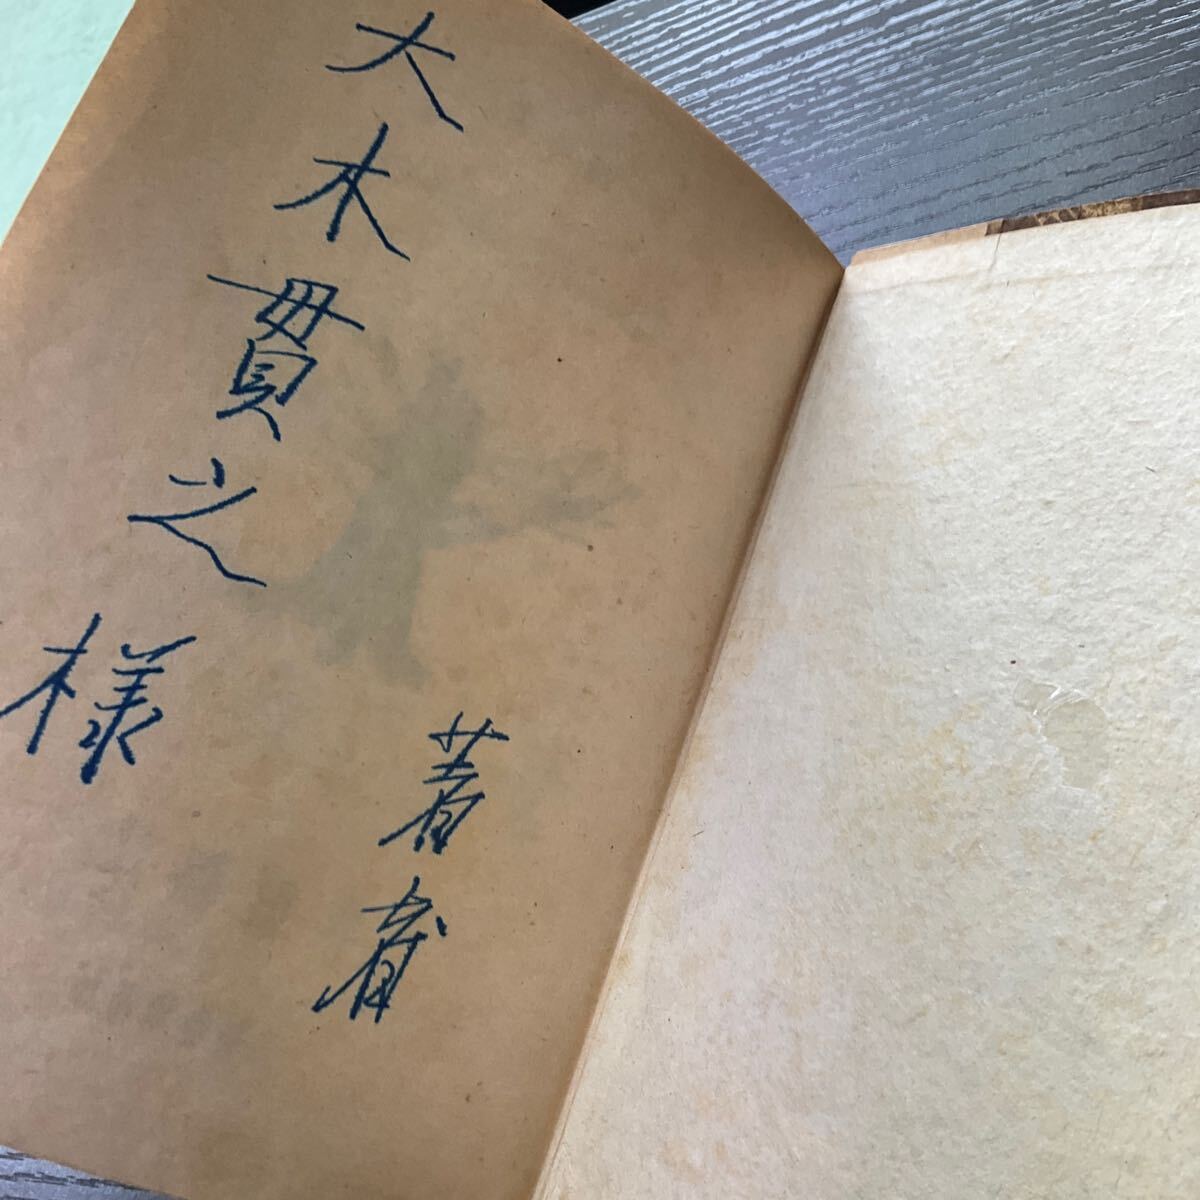 大木貫之様
著者